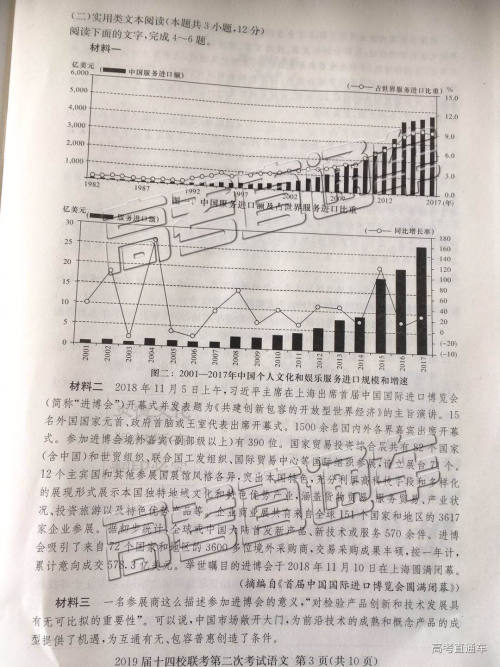 (二)实用类文本阅读(本题共3小题,12分)
阅读下面的文字,完成4~6题。
材料一
亿美元
6,000
(中国服务进口额)
(占世界服务进口比重) %
5,000
4,000
3,000
2,000
1,000
15.0
12.0
9.0
6.0
3.0
0.0
1982 1987 1992 1997 2002 2007 2012 2017(年)
图一:中国服务进口额及占世界服务进口比重
亿美元
(服务进口额)
(同比增长率)
30
25
20
15
10
5
0
180
160
140
120
100
80
60
40
20
0
(-20)
(-10)
2001 2002 2003 2004 2005 2006 2007 2008 2009 2010 2011 2012 2013 2014 2015 2016 2017
图二:2001—2017年中国个人文化和娱乐服务进口规模和增速
材料二 2018年11月5日上午,习近平主席在上海出席首届中国国际进口博览会
(简称“进博会”)开幕式并发表题为《共建创新包容的开放型世界经济》的主旨演讲。15
名外国国家元首、政府首脑或王室代表出席开幕式。1500余名国内外各界嘉宾出席开幕
式。参加进博会境外嘉宾(副部级以上)有390位。国家贸易投资综合展共有82个国家
(含中国)和世贸组织、联合国工发组织、国际贸易中心等国际组织参展,设立展台71个。
12个主宾国和其他参展国展馆风格各异,突出本国特色,充分利用高科技手段和多样化
的展现形式展示本国独特地域文化和特色优势产业,涵盖货物贸易、服务贸易、产业状
况、投资旅游以及特色优势产品等。企业商业展共有来自全球151个国家和地区的3617
家企业参展。据初步统计,全球或中国大陆首发新产品、新技术或服务570余件。进博
会吸引了来自72个国家和地区的3600多位境外采购商,交易采购成果丰硕,按一年计,
累计意向成交578.3亿美元。举世瞩目的进博会于2018年11月10日在上海圆满闭幕。
(摘编自《首届中国国际进口博览会圆满闭幕》)
材料三 一名参展商这么描述参加进博会的意义,“对检验产品创新和技术发展具
有无可比拟的重要性”。可以说,中国市场敞开大门,为前沿技术的成熟和概念产品的成
型提供了机遇,为互通有无、包容普惠创造了条件。
2019届十四校联考第二次考试语文 第3页(共10页)
高考直通车